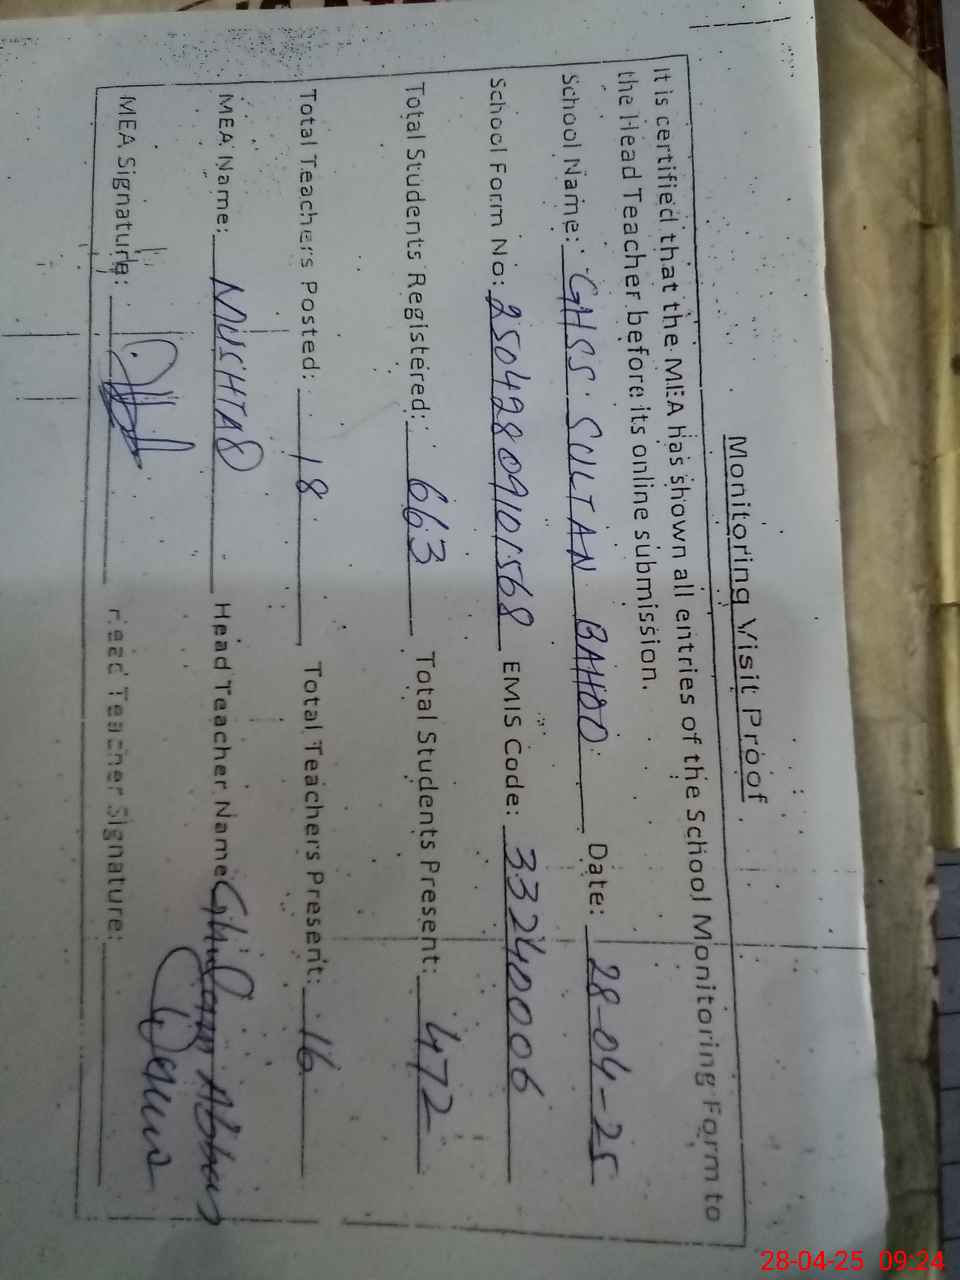 Monitoring Visit Proof
It is certified that the MEA has shown all entries of the School Monitoring Form to
the Head Teacher before its online submission.
School Name: GHSS SULTAN BAHOO Date: 28-04-25
School Form No: 25042809101568 EMIS Code: 33240006
Total Students Registered: 663 Total Students Present: 472
Total Teachers Posted: 18 Total Teachers Present: 16
MEA Name: MUSHTAQ Head Teacher Name: Ghulam Abbas
MEA Signature: Head Teacher Signature:
28-04-25 09:24